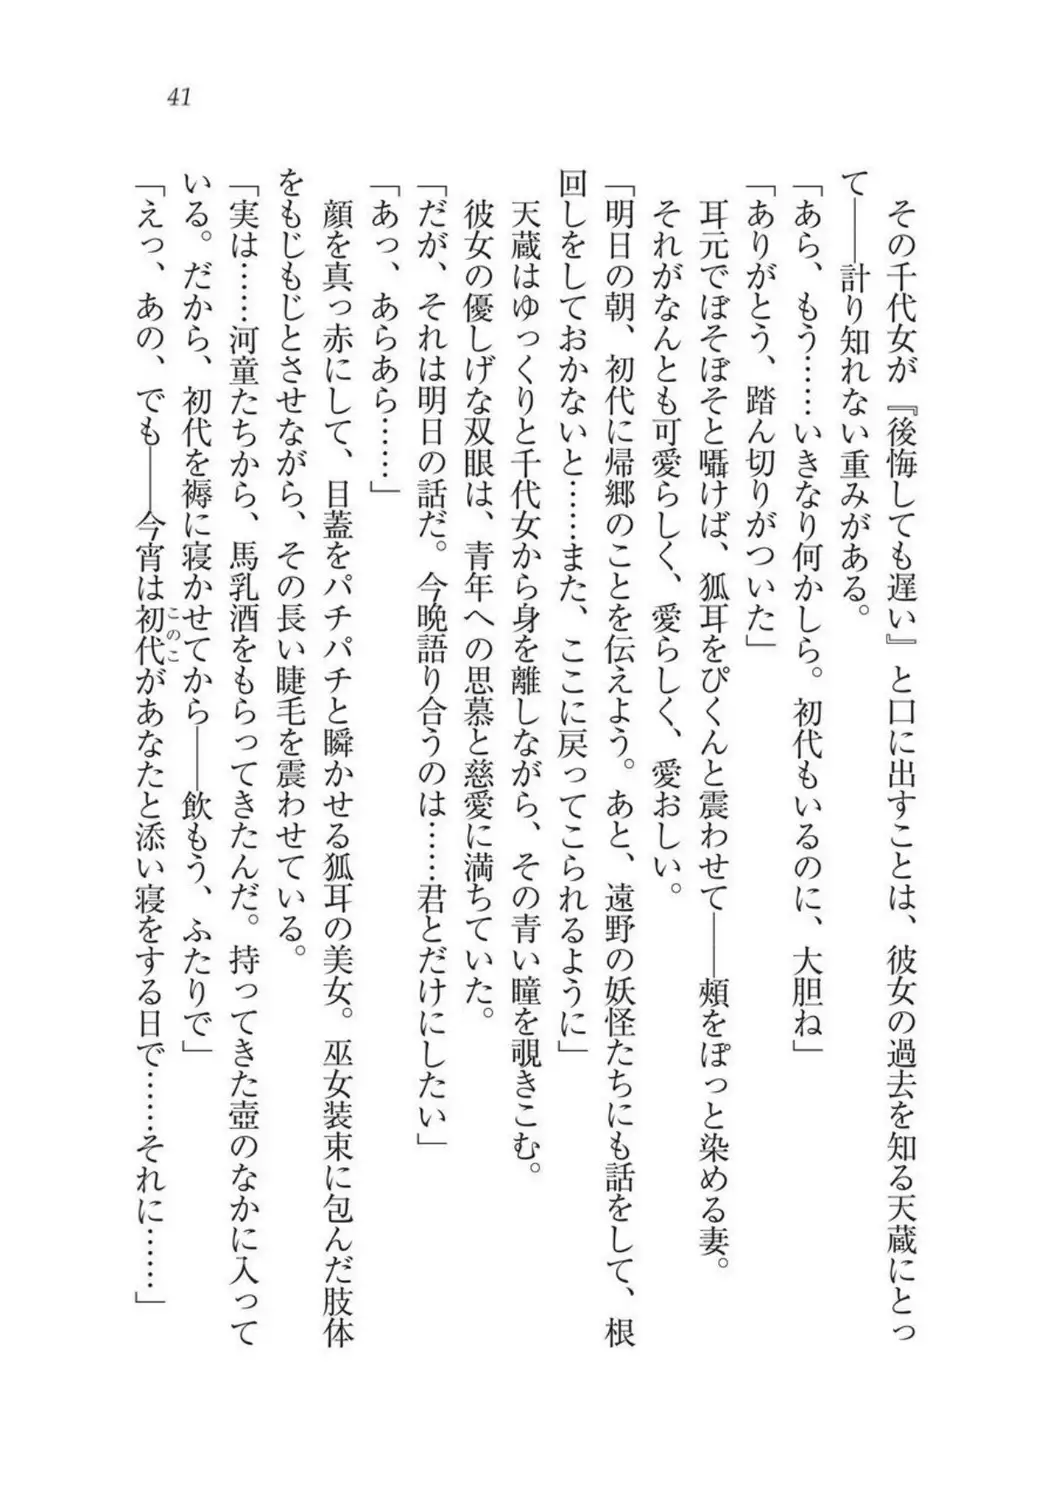 41
その千代女が『後悔しても遅い』と口に出すことは、彼女の過去を知る天蔵にとっ
て――計り知れない重みがある。
「あら、もう……いきなり何かしら。初代もいるのに、大胆ね」
「ありがとう、踏ん切りがついた」
耳元でぼそぼそと囁けば、狐耳をぴくんと震わせて――頰をぽっと染める妻。
それがなんとも可愛らしく、愛らしく、愛おしい。
「明日の朝、初代に帰郷のことを伝えよう。あと、遠野の妖怪たちにも話をして、根
回しをしておかないと……また、ここに戻ってこられるように」
天蔵はゆっくりと千代女から身を離しながら、その青い瞳を覗きこむ。
彼女の優しげな双眼は、青年への思慕と慈愛に満ちていた。
「だが、それは明日の話だ。今晩語り合うのは……君とだけにしたい」
「あっ、あらあら……」
顔を真っ赤にして、目蓋をパチパチと瞬かせる狐耳の美女。巫女装束に包んだ肢体
をもじもじとさせながら、その長い睫毛を震わせている。
「実は……河童たちから、馬乳酒をもらってきたんだ。持ってきた壺のなかに入って
いる。だから、初代を褥に寝かせてから――飲もう、ふたりで」
「えっ、あの、でも――今宵は初代がこのこあなたと添い寝をする日で……それに……」